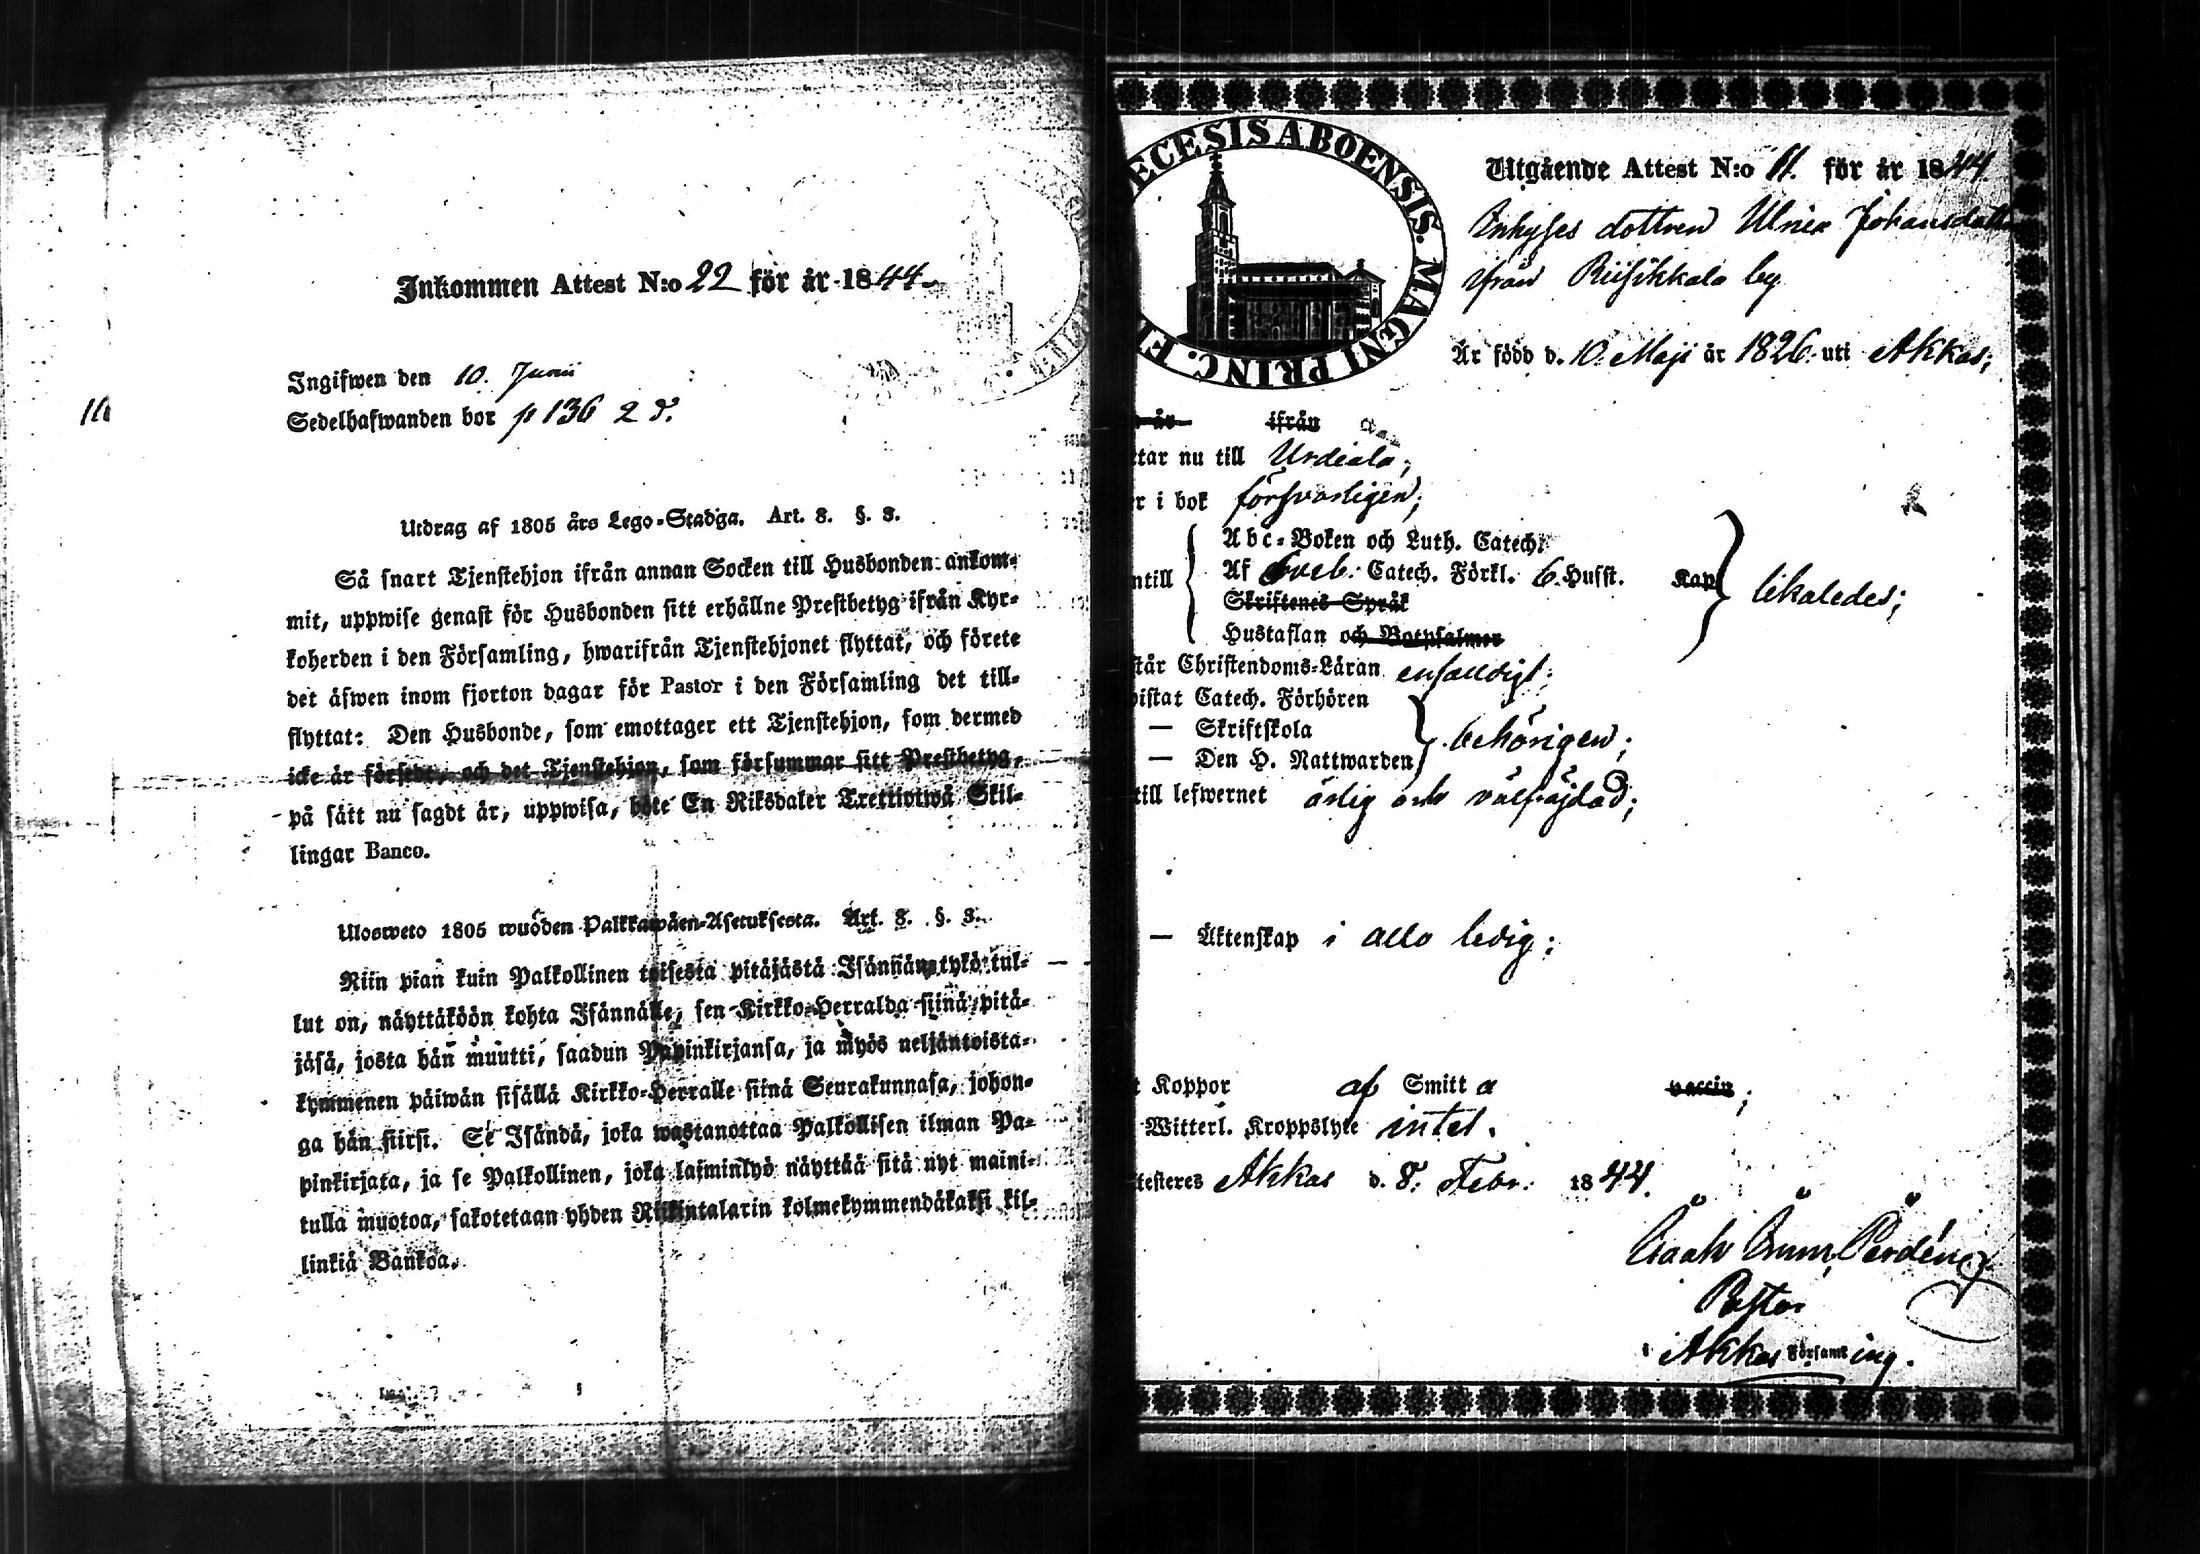 Inkommen Attest N:o 22 för år 1844.
Ingifwen den 10. Junii
Sedelhafwanden bor p 136 2 d.
Utdrag af 1805 års Lego-Stadga. Art. 8. §. 3.
Så snart Tjenstehjon ifrån annan Socken till Husbonden ankom-
mit, uppwise genast för Husbonden sitt erhållne Prestbetyg ifrån Kyr-
koherden i den Församling, hwarifrån Tjenstehjonet flyttat, och förete
det äfwen inom fjorton dagar för Pastor i den Församling det till-
flyttat: Den Husbonde, som emottager ett Tjenstehjon, som dermed
icke är försedt, och det Tjenstehjon, som försummar sitt Prestbetyg,
på sätt nu sagdt är, uppwisa, böte En Riksdaler Trettiotwå Skil-
lingar Banco.
Ulosweto 1805 wuoden Palkkawäen-Asetuksesta. Art. 8. §. 3.
Niin pian kuin Palkollinen toisesta pitäjästä Isännän tykö tul-
lut on, näyttäköön kohta Isännälle, sen Kirkko-Herralda siinä pitä-
jäsä, josta hän muutti, saadun Papinkirjansa, ja myös neljäntoista-
kymmenen päiwän sisällä Kirkko-Herralle siinä Seurakunnasa, johon-
ga hän siirsi. Se Isändä, joka wastanottaa Palkollisen ilman Pa-
pinkirjata, ja se Palkollinen, joka laiminlyö näyttää sitä nyt maini-
tulla muotoa, sakotetaan yhden Riikintalarin kolmekymmendäkaksi kil-
linkiä Bankoa.
ECESIS ABOENSIS. MAGNI PRINC. F
Utgående Attest N:o 11. för år 1844.
Inhyses dottren Ulrica Johansdotter
ifrån Riisikkala by
Är född d. 10. Maji år 1826. uti Akkas;
år ifrån
tar nu till Urdiala;
r i bok försvarligen;
Abc-Boken och Luth. Catech.
ntill Af Sveb. Catech. Förkl. 6. Husst. Kap likaledes;
Skriftenes Språk
Hustaflan och Botpsalmer
står Christendoms-Läran enfaldigt;
istat Catech. Förhören
— Skriftskola behörigen;
— Den H. Nattwarden
till lefwernet ärlig och välfräjdad;
— Äktenskap i allo ledig;
t Koppor af Smitt a vaccin;
Witterl. Kroppslyte intet.
testeres Akkas d. 8. Febr. 1844.
Pastor
i Akkas Församling.